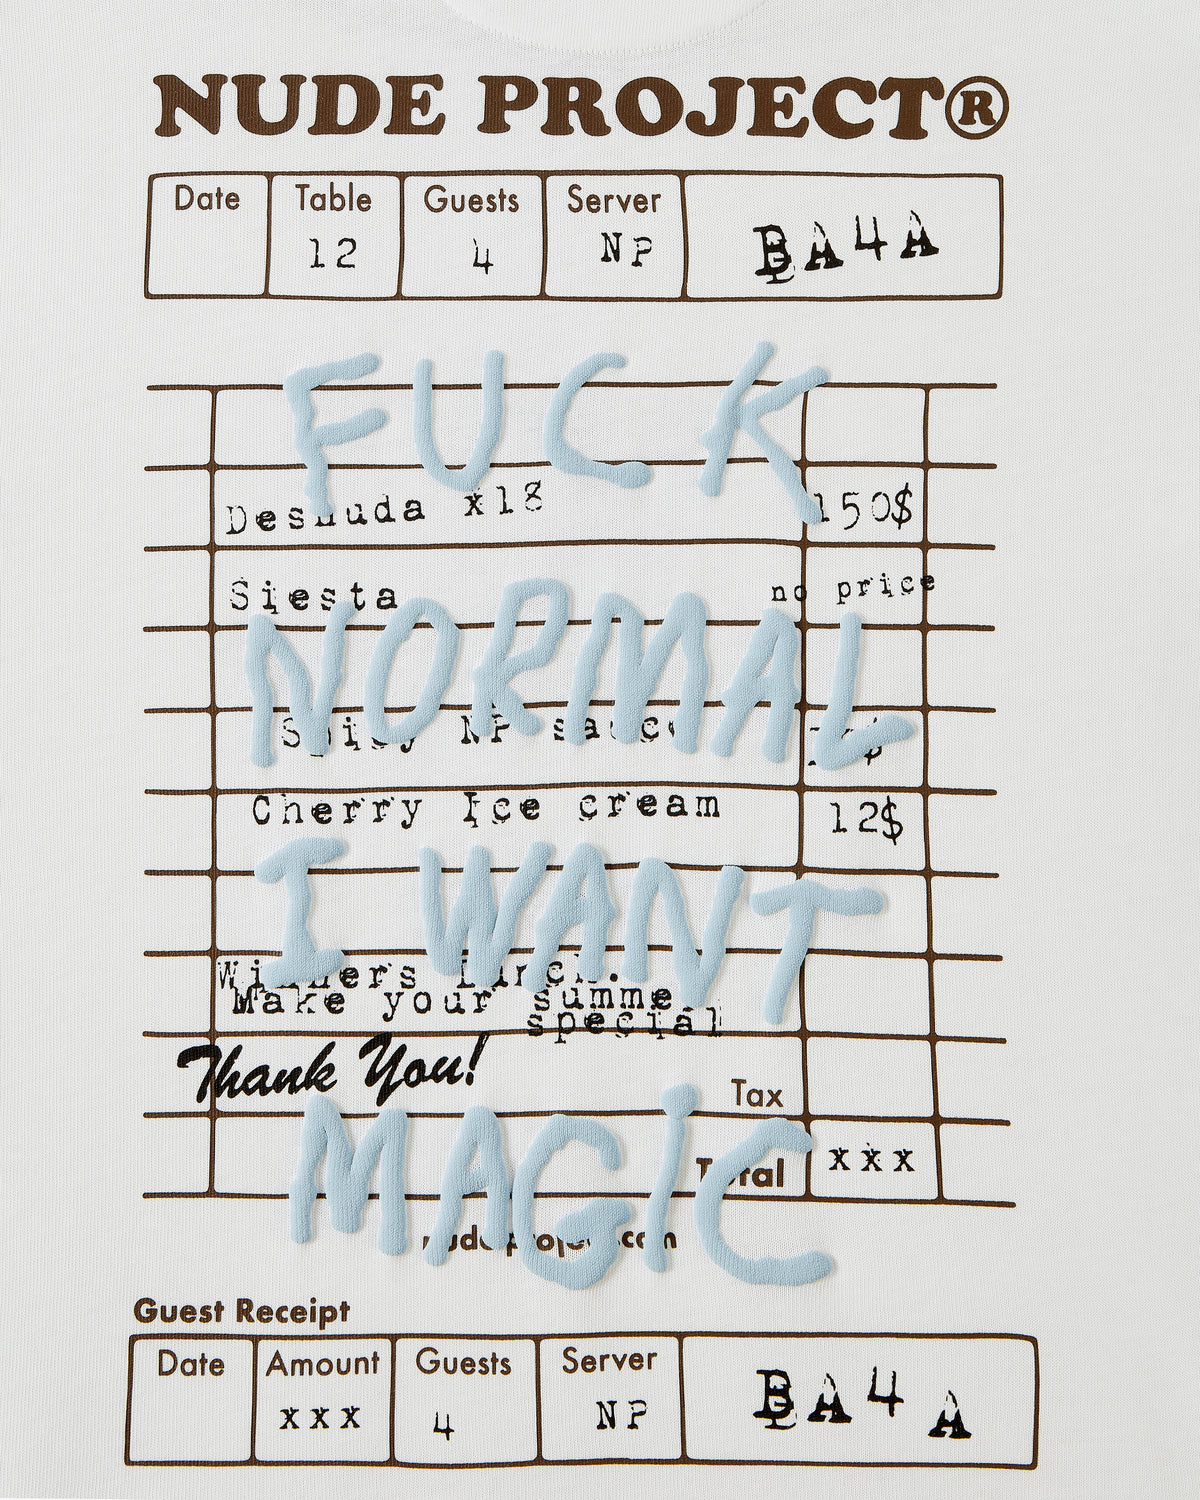 NUDE PROJECT®
Date Table Guests Server
12 4 NP BA4A
FUCK
Desnuda x18 150$
Siesta no price
NORMAL
Spicy NP sauce
Cherry Ice cream 12$
I WANT
Winners Lunch.
Make your summe
special
Thank You!
Tax
MAGIC
Total xxx
nude-project.com
Guest Receipt
Date Amount Guests Server
xxx 4 NP BA4A